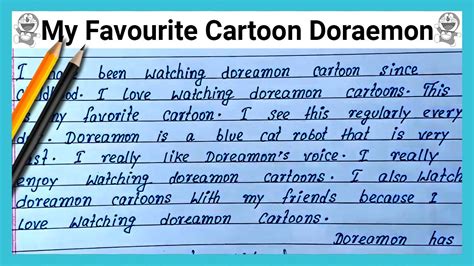 My Favourite Cartoon Doraemon
I been watching doreamon cartoon since
I love watching doreamon cartoons. This
my favorite cartoon. I see this regularly every
Doreamon is a blue cat robot that is very
I really like Doreamon's voice. I really
enjoy watching doreamon cartoons. I also watch
doreamon cartoons with my friends because I
love watching doreamon cartoons.
Doreamon has